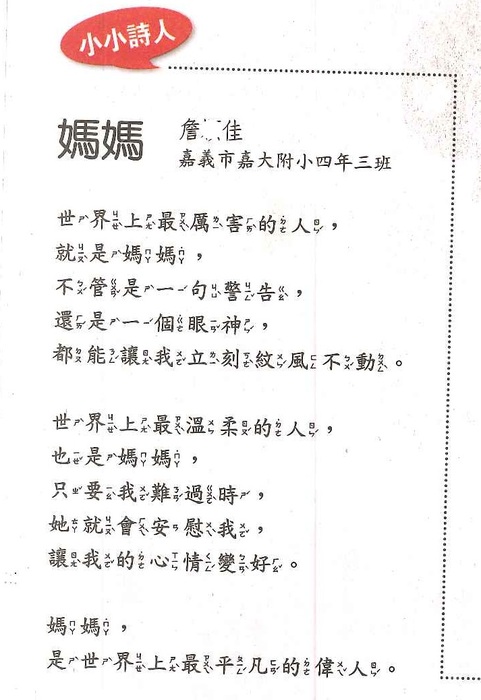 小小詩人
媽媽
詹 佳
嘉義市嘉大附小四年三班
世界上最厲害的人，
就是媽媽，
不管是一句警告，
還是一個眼神，
都能讓我立刻紋風不動。
世界上最溫柔的人，
也是媽媽，
只要我難過時，
她就會安慰我，
讓我的心情變好。
媽媽，
是世界上最平凡的偉人。